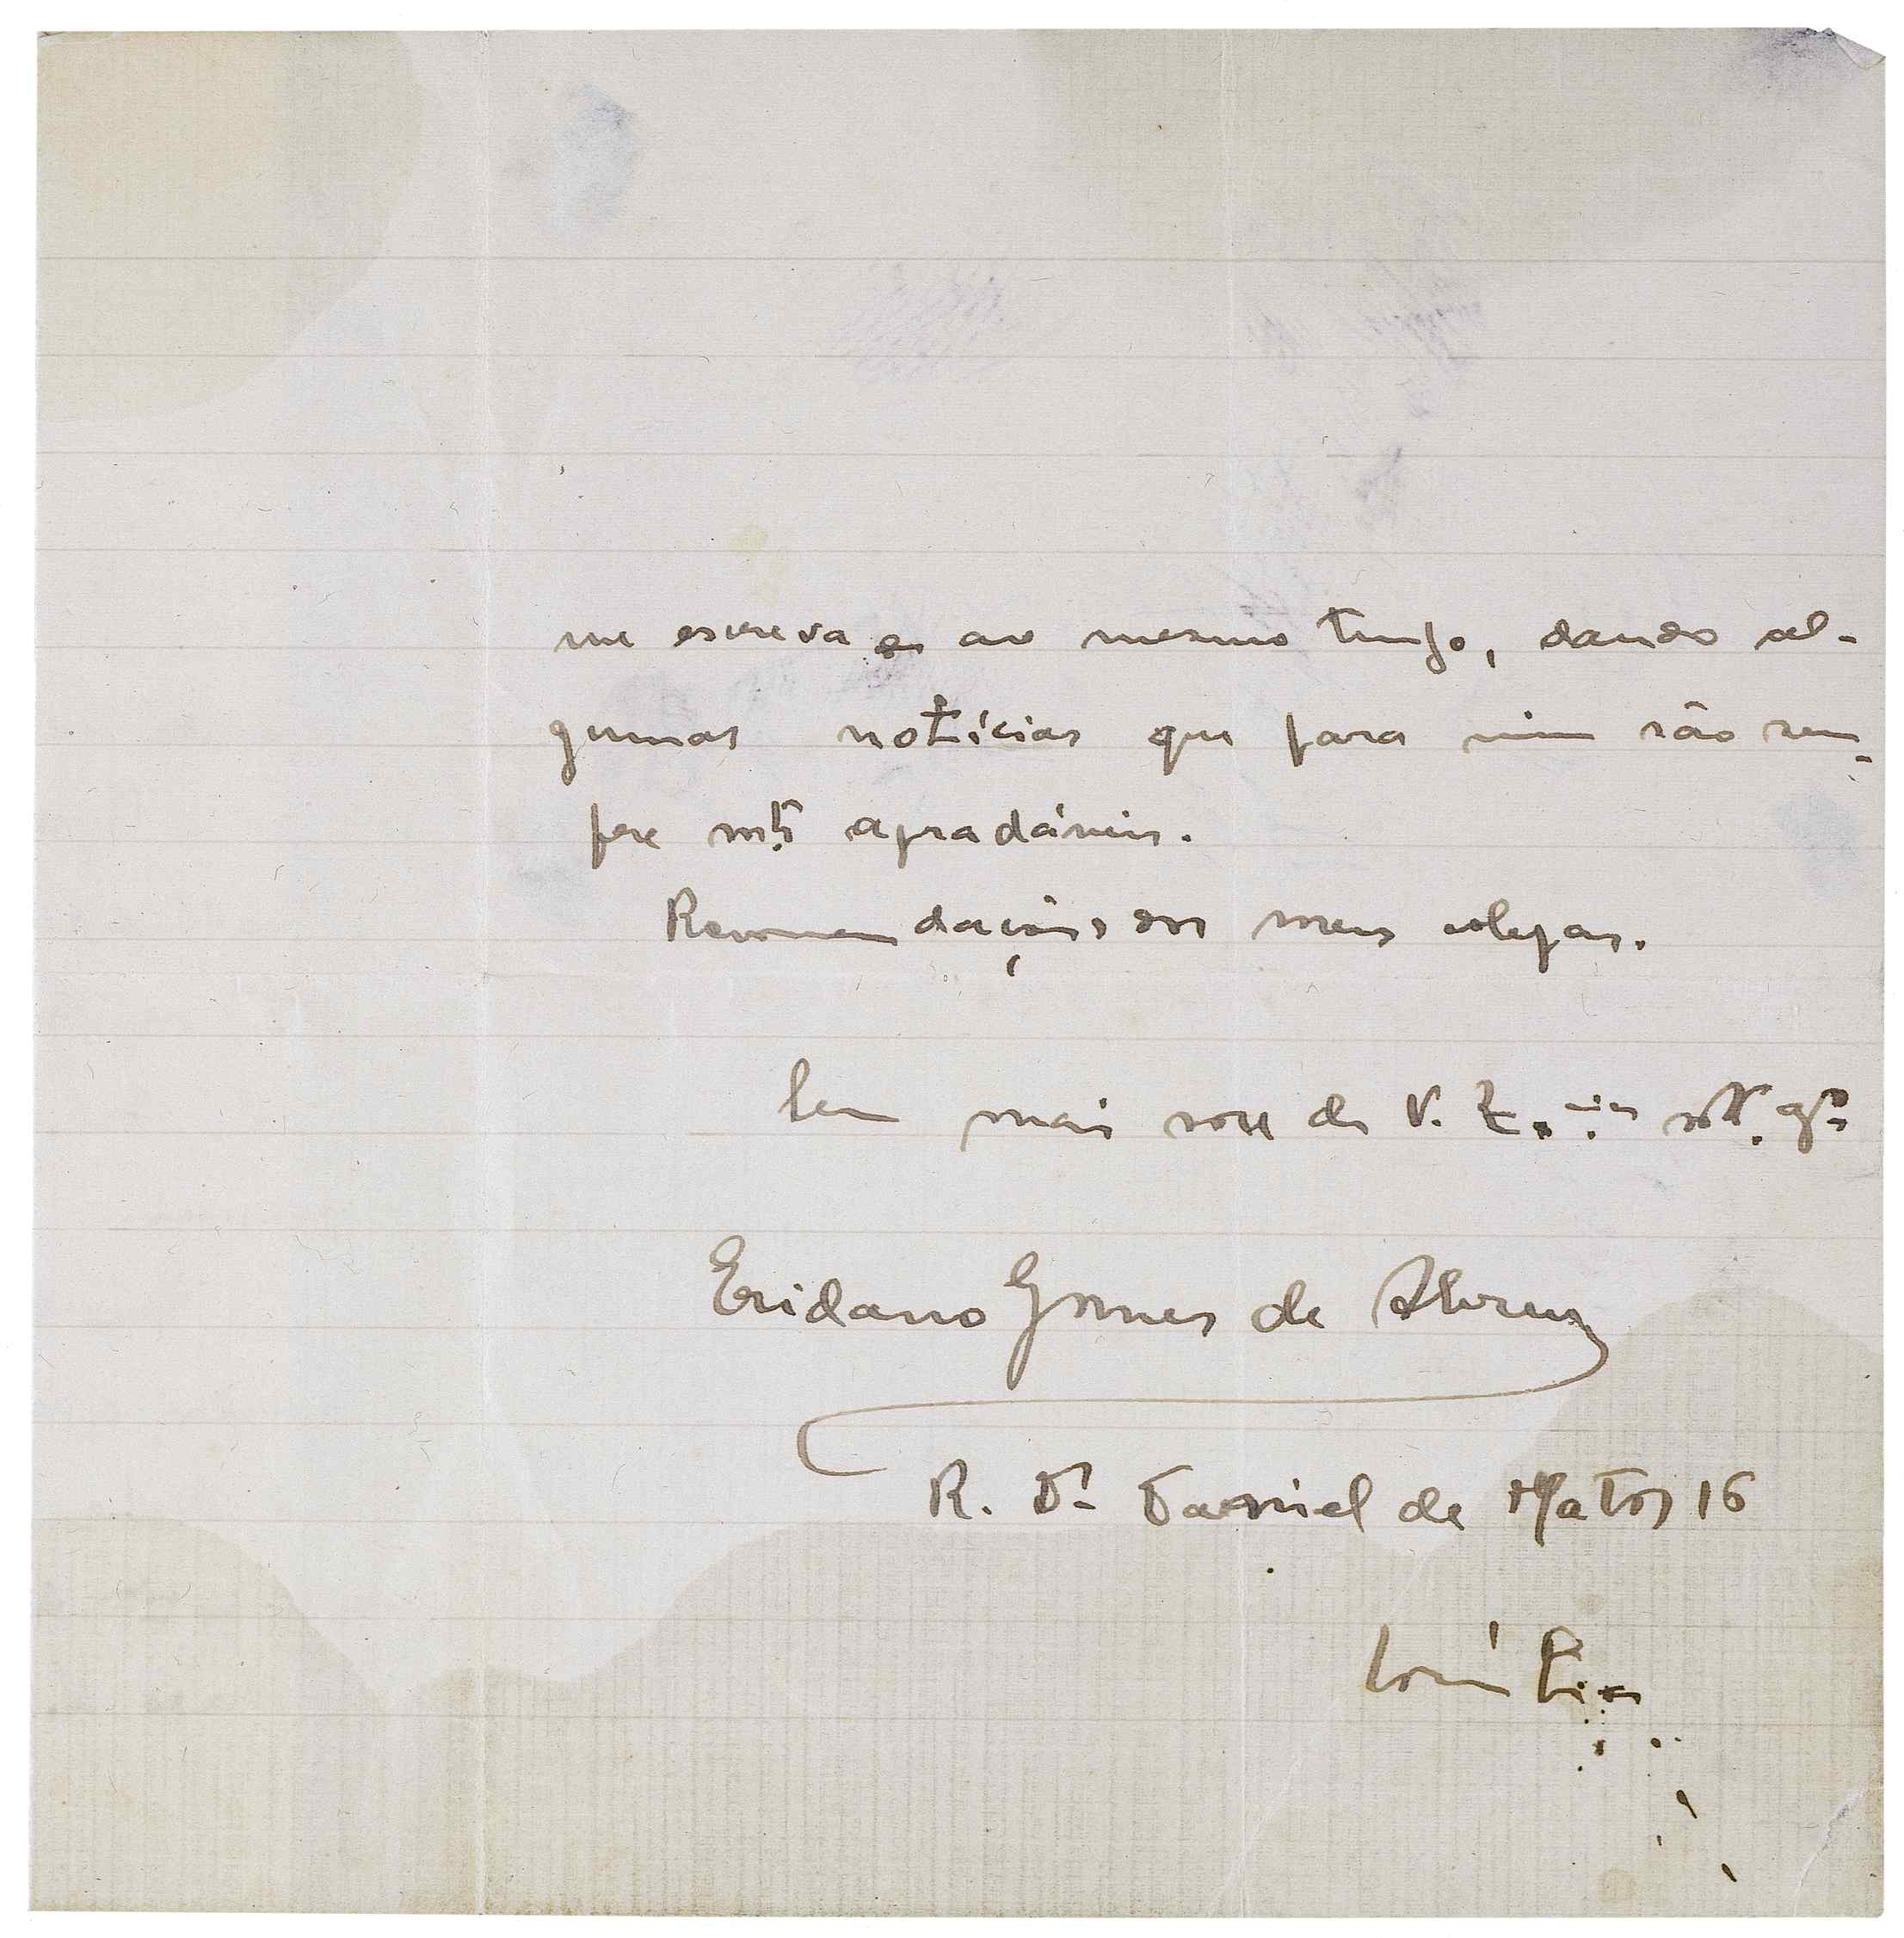 me escreva e ao mesmo tempo, dando al-
gumas notícias que para mim são sem-
pre mto agradáveis.
Recomendações dos meus colegas.
Sem mais sou de V. Ex.cia
Eridano Gomes de Abreu
R. Dr Daniel de Matos 16
Coimbra